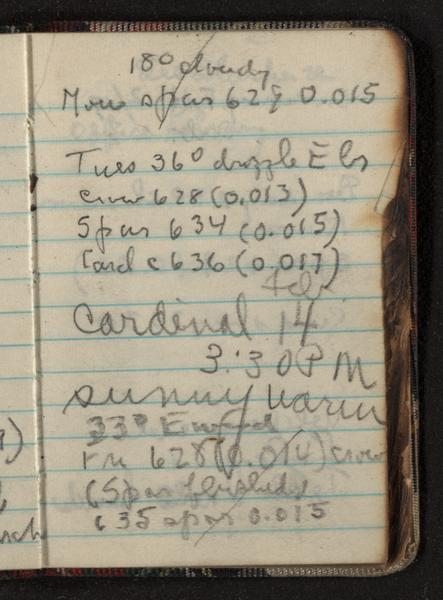 18° cloudy
Mon spar 629 0.015
Tues 36° drizzle E
crow 628 (0.013)
Spar 634 (0.015)
Card c 636 (0.017)
Feb
Cardinal 14
3:30 PM
sunny warm
33° E wind
628 (0.014) crow
(Spar
635 spar 0.015